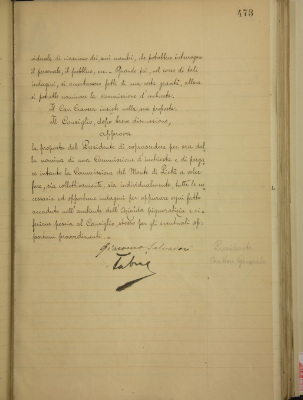 473
siduale di ciascuno dei suoi membri, che potrebbero interrogare
il personale, il pubblico, ecc. Quando poi, nel corso di tali
indagini, si accertassero fatti di una certa gravità, allora
si potrebbe nominare la Commissione d'inchiesta.
Il Can. insiste nella sua proposta.
Il Consiglio, dopo breve discussione,
approva
la proposta del Presidente di soprassedere per ora dal
la nomina di una Commissione d'inchiesta e di
intanto la Commissione del Monte di Pietà a voler
fare, sia collettivamente, sia individualmente, tutte le ne
cessarie ed opportune indagini per appurare ogni fatto
avvenuto nell'ambiente dell'Azienda pignoratizia e ri
ferirne poscia al Consiglio stesso per gli eventuali op
portuni provvedimenti.
Giacomo Salvatori
Presidente